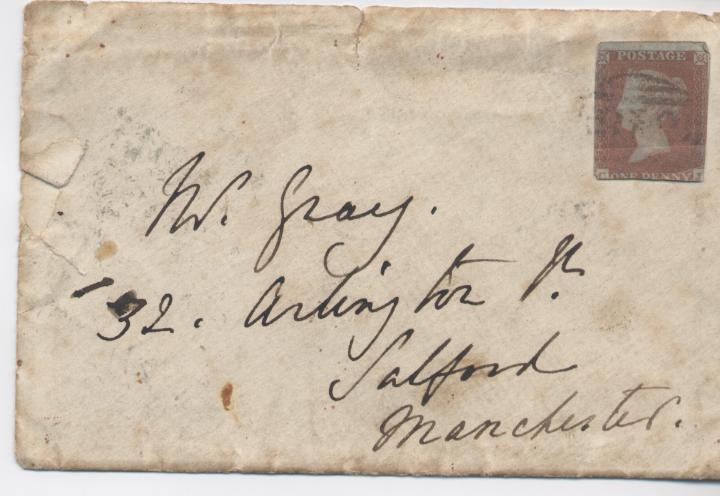 POSTAGE
ONE PENNY
Mr. Gray.
32. Arlington St.
Salford
Manchester.